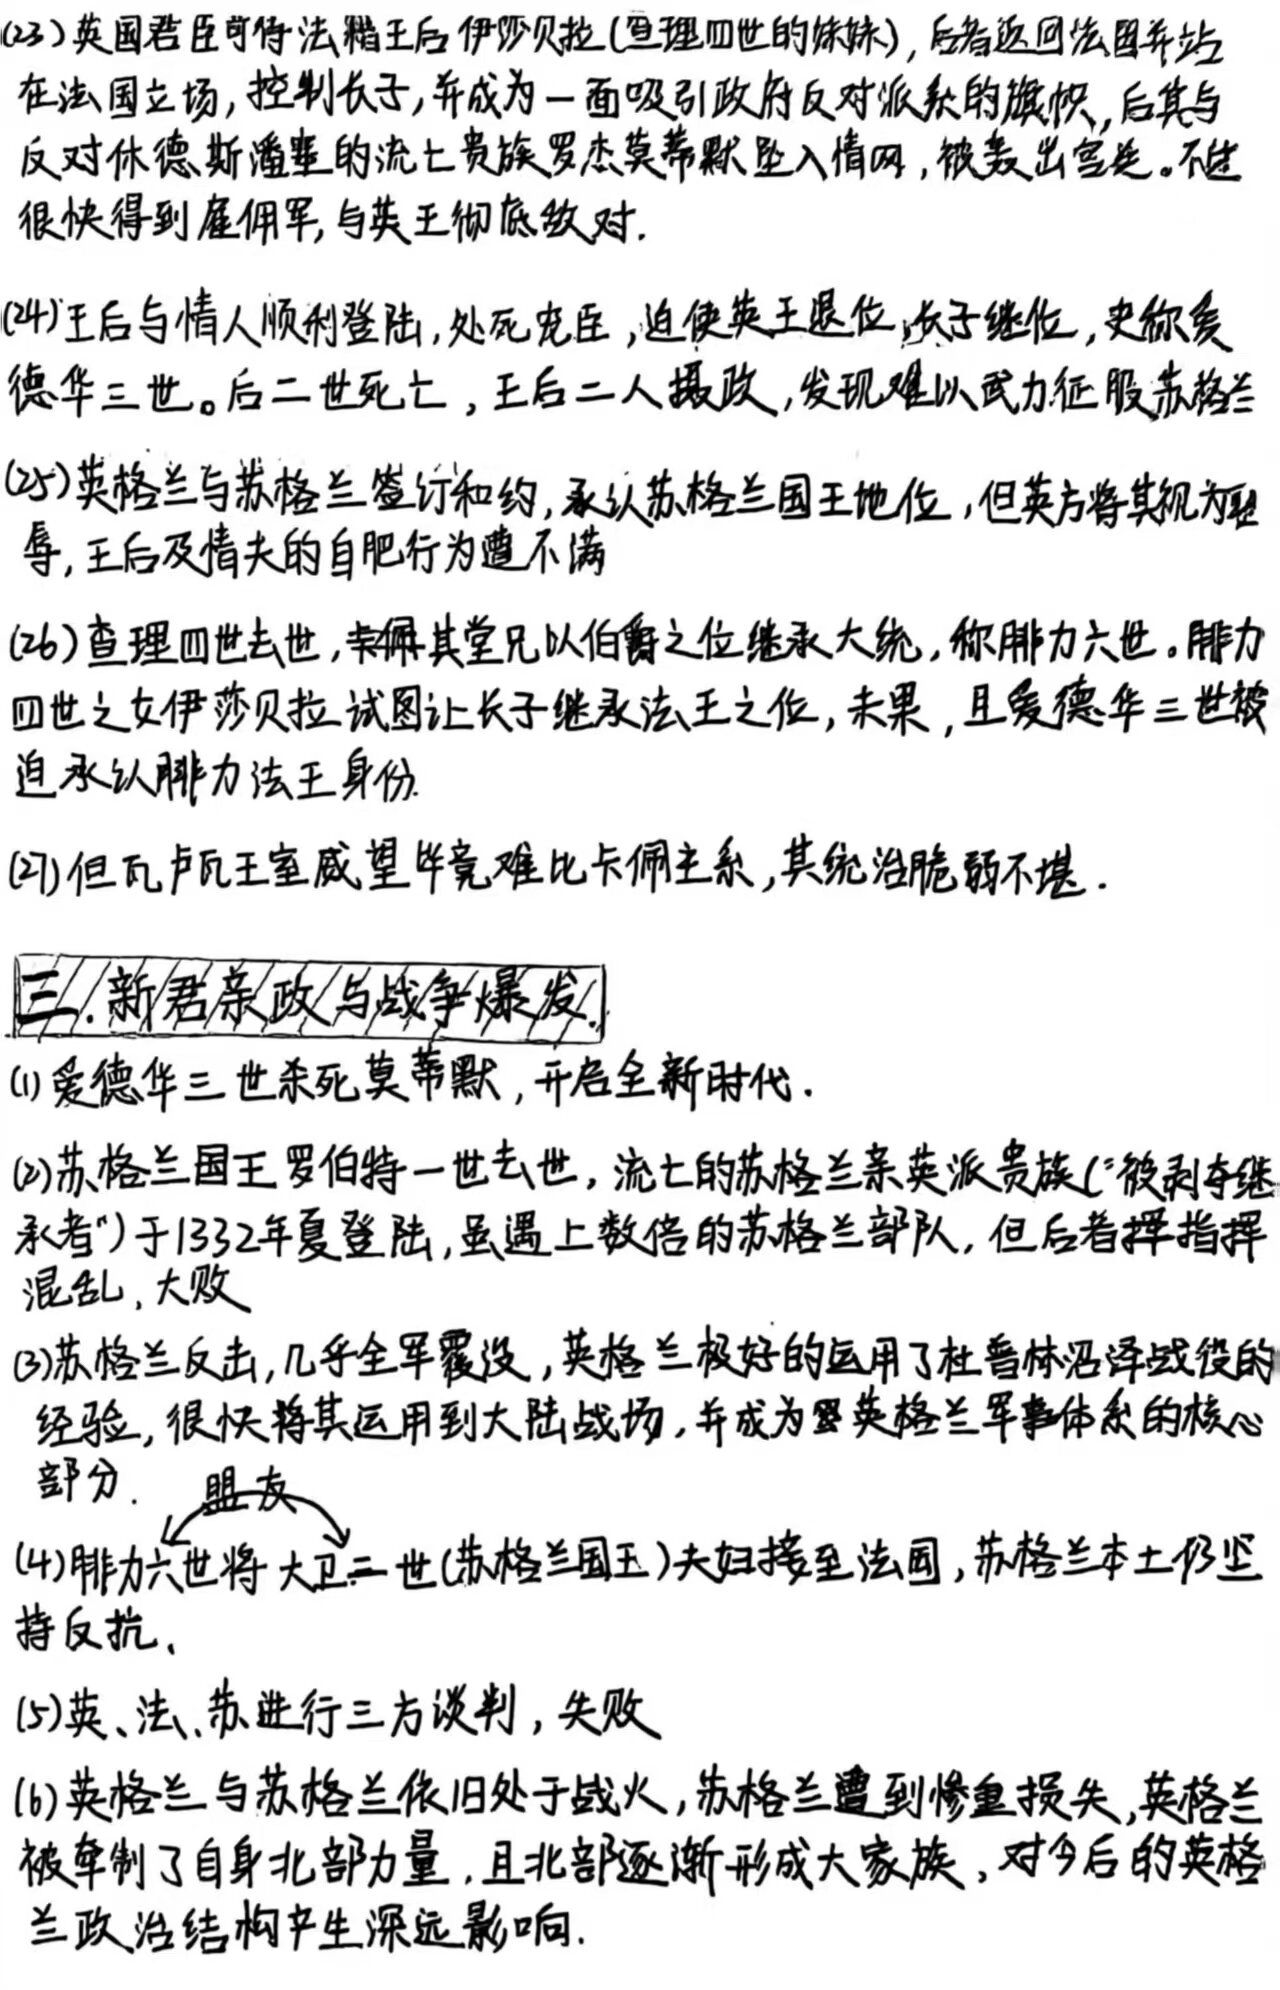 (23)英国君臣可待法籍王后伊莎贝拉(查理四世的妹妹),后者返回法国并站
在法国立场,控制长子,并成为一面吸引政府反对派系的旗帜,后其与
反对休德斯潘塞的流亡贵族罗杰莫蒂默坠入情网,被轰出宫廷。不过
很快得到雇佣军,与英王彻底敌对.
(24)王后与情人顺利登陆,处死宠臣,迫使英王退位,长子继位,史称爱
德华三世。后二世死亡,王后二人摄政,发现难以武力征服苏格兰
(25)英格兰与苏格兰签订和约,承认苏格兰国王地位,但英方将其视为耻
辱,王后及情夫的自肥行为遭不满
(26)查理四世去世,其堂兄以伯爵之位继承大统,称腓力六世。腓力
四世之女伊莎贝拉试图让长子继承法王之位,未果,且爱德华三世被
迫承认腓力法王身份.
(27)但瓦卢瓦王室威望毕竟难比卡佩主系,其统治脆弱不堪.
三.新君亲政与战争爆发.
(1)爱德华三世杀死莫蒂默,开启全新时代.
(2)苏格兰国王罗伯特一世去世,流亡的苏格兰亲英派贵族("被剥夺继
承者")于1332年夏登陆,虽遇上数倍的苏格兰部队,但后者指挥
混乱,大败
(3)苏格兰反击,几乎全军覆没,英格兰极好的运用了杜普林沼泽战役的
经验,很快将其运用到大陆战场,并成为英格兰军事体系的核心
部分.
盟友
(4)腓力六世将大卫二世(苏格兰国王)夫妇接至法国,苏格兰本土仍坚
持反抗、
(5)英、法、苏进行三方谈判,失败
(6)英格兰与苏格兰依旧处于战火,苏格兰遭到惨重损失,英格兰
被牵制了自身北部力量,且北部逐渐形成大家族,对今后的英格
兰政治结构产生深远影响.